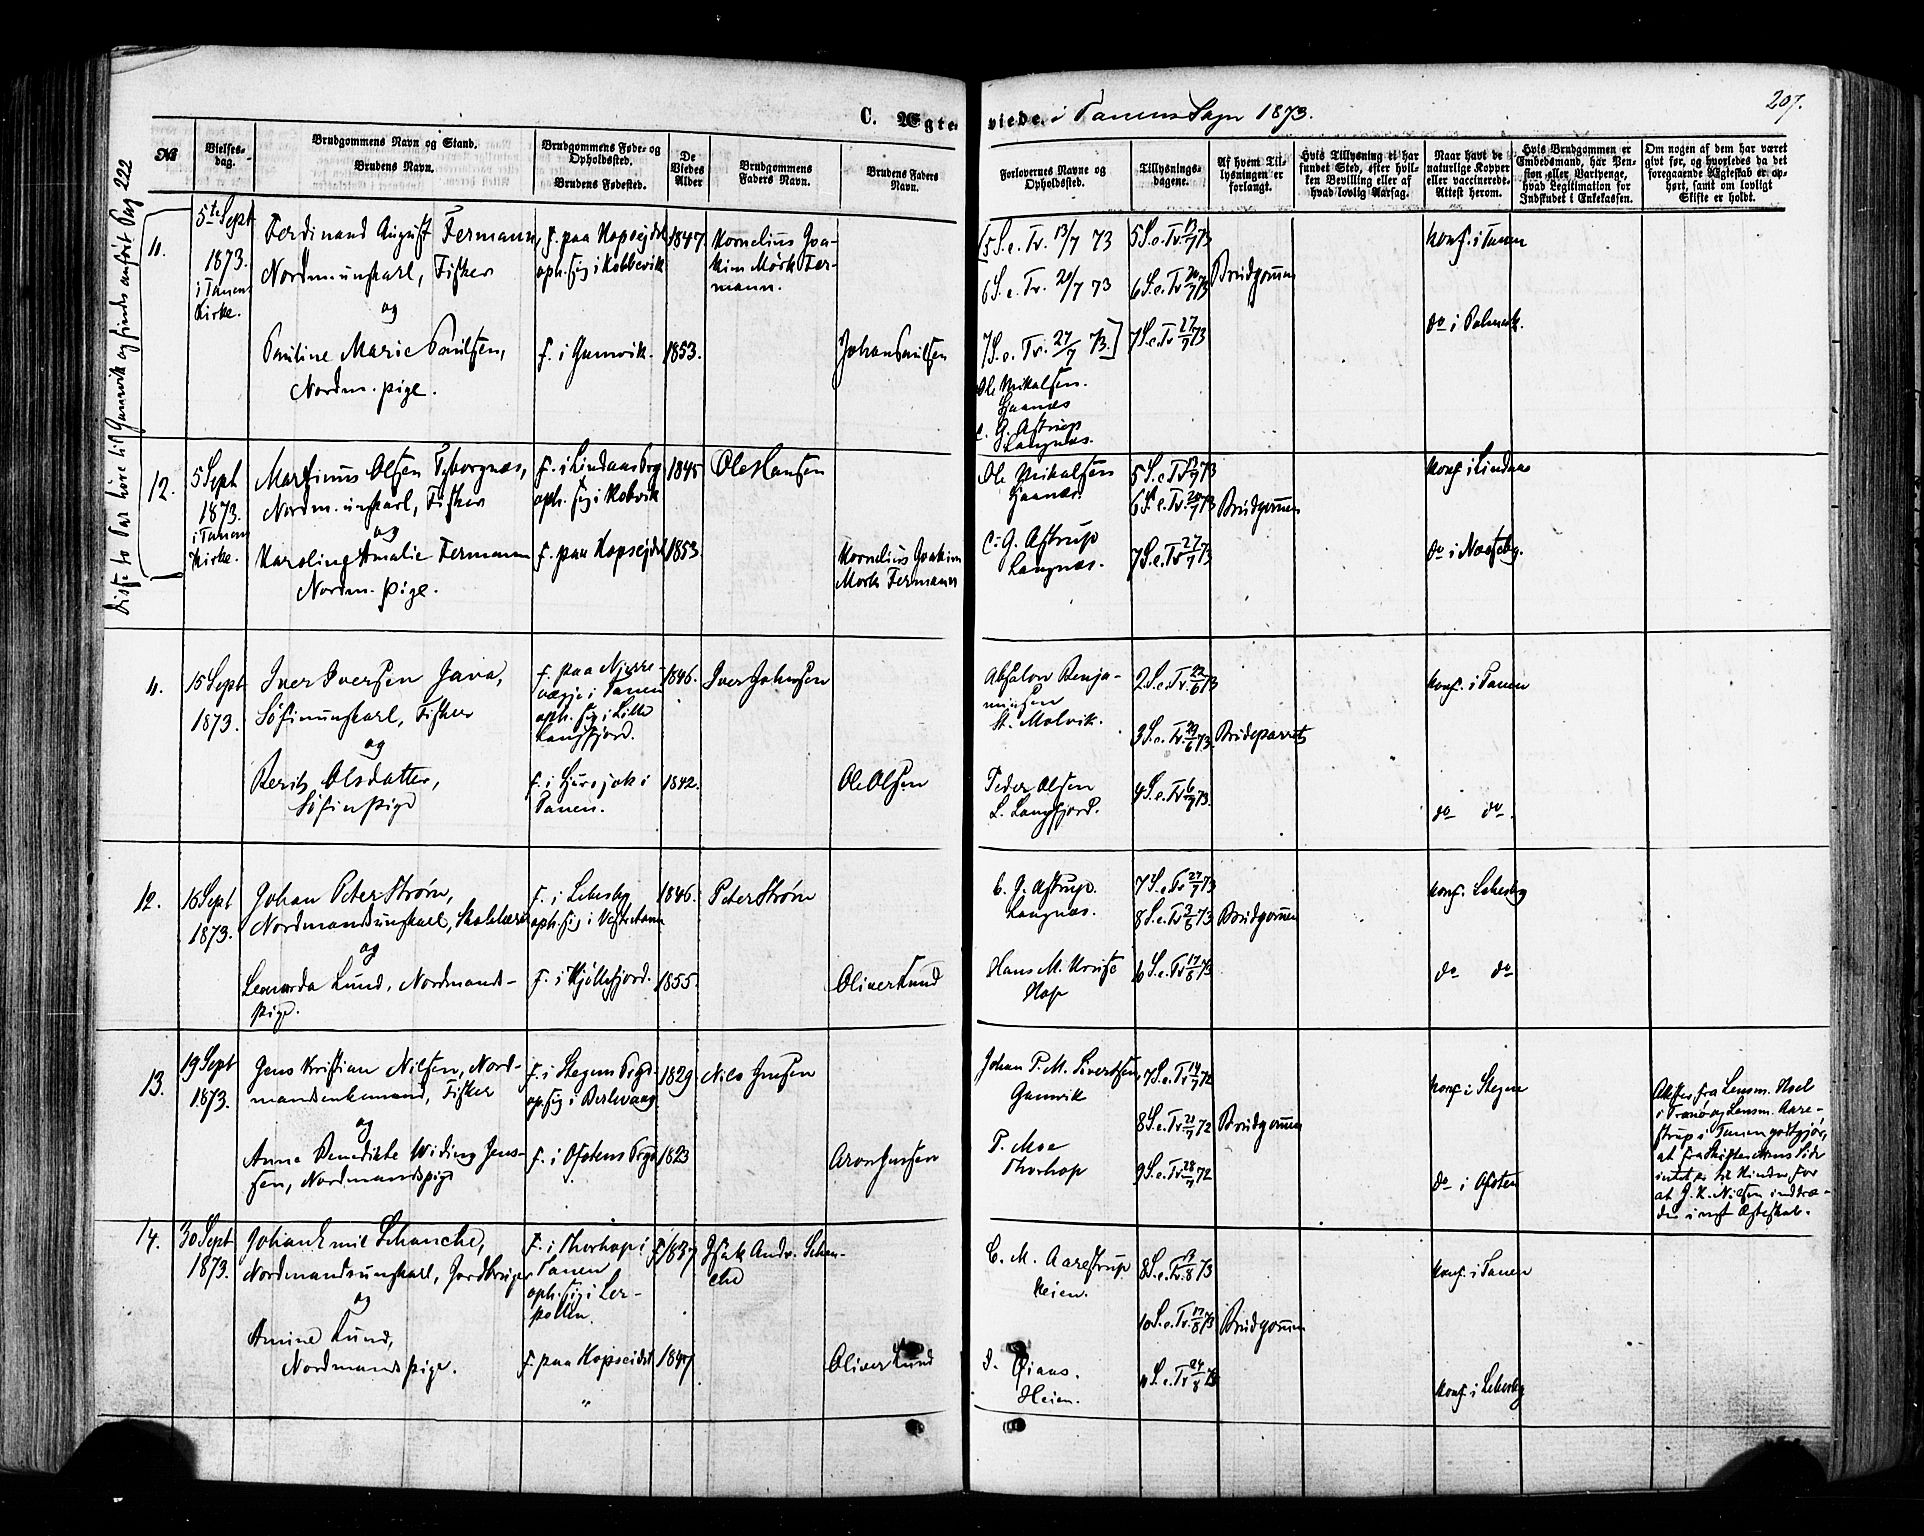 207.
C. Ægteviede i Tanens Sogn 1873.
No
Vielses-
dag.
Brudgommens Navn og Stand.
Brudens Navn.
Brudgommens Føde- og
Opholdssted.
Brudens Fødested.
De
Viedes
Alder
Brudgommens
Faders Navn.
Brudens Faders
Navn.
Forlovernes Navne og
Opholdssted.
Tillysnings-
dagene.
Af hvem Til-
lysningen er
forlangt.
Hvis Tillysning ei har
fundet Sted, efter hvil-
ken Bevilling eller af
hvad lovlig Aarsag.
Naar havt de
naturlige Kopper
eller vaccinerede.
Attest herom.
Hvis Brudgommen er
Embedsmand, har Pen-
sion eller Vartpenge,
hvad Legitimation for
Indskudet i Enkekassen.
Om nogen af dem har været
givt før, og hvorledes da det
foregaaende Ægteskab er op-
hørt, samt om lovligt
Skifte er holdt.
Disse to Par høre til Gamvik og findes anført Pag 222
11.
5te Sept
1873.
i Tanens
Kirke.
Ferdinand August Fermann,
Nordm. unskarl, Fisker
og
Pauline Marie Paulsen,
Nordm. pige.
f. paa Hopseidet
oph. sig i Kobbevik
f. i Gamvik.
1847.
1853.
Kornelius Joa-
kim Mörk Fer-
mann.
Johan Paulsen
[5 S. e. Tr. 13/7 73
6 S. e. Tr. 20/7 73
7 S. e. Tr. 27/7 73.]
Ole Mikalsen.
C. G. Astrup
Langnæs.
5 S. e. Tr. 13/7 73
6 S. e. Tr. 20/7 73
7 S. e. Tr. 27/7 73
Brudgommen
Konf. i Tanen
do i Polmak.
12.
5 Sept
1873.
i Tanens
Kirke.
Martinus Olsen Tyborgnæs,
Nordm. unskarl, Fisker
og
Karoline Amalie Fermann
Nordm. pige.
f. i Lindaas Prg
oph. sig i Kobvik
f. paa Hopseidet
1845
1853.
Ole Hansen
Kornelius Joakim
Mörk Fermann
Ole Mikalsen
C. G. Astrup
Langnæs.
5 S. e. Tr. 13/7 73
6 S. e. Tr. 20/7 73
7 S. e. Tr. 27/7 73
Brudgommen
Konf. i Lindaas
do i Næsseby.
11.
15 Sept
1873.
Iver Iversen Java,
Söfinunskarl, Fisker
og
Berit Olsdatter,
Söfinpige
f. paa Njerre-
vægje i Tanen
oph. sig i Lille
Langfjord.
f. i
Tanen.
1846.
1842.
Iver Johnsen
Ole Olsen
Absalon Benja-
minsen
St. Molvik.
Peder Olsen
L. Langfjord.
2 S. e. Tr. 22/6 73
3 S. e. Tr. 29/6 73.
4 S. e. Tr. 6/7 73.
Brudeparret
Konf. i Tanen
do do.
12.
16 Sept
1873.
Johan Peter Ström,
Nordmandsunskarl, Skolelærer
og
Leonarda Lund, Nordmands-
pige.
f. i Lebesby
oph. sig i Vestertana
f. i Kjöllefjord.
1846.
1855.
Peter Ström
Oliver Lund
C. G. Astrup.
Langnæs.
Hans M.
Hop
7 S. e. Tr. 27/7 73
8 S. e. Tr. 3/8 73
S. e. Tr. 17/8 73
Brudgommen
Konf. i Lebesby
do do
13.
19 Sept
1873.
Jens Kristian Nilsen, Nord-
mandsenkemand, Fisker
og
Anna Benedikte Widing Jens-
sen, Nordmandspige
f. i Stegens Prgd
op. sig i Berlevaag
f. i Ofotens Prgd
1829
1823
Nils Jensen
Aron Jenssen
Johan P. M. Sivertsen,
Gamvik
P. Moe
Thorhop
7 S. e. Tr. 14/7 72
8 S. e. Tr. 21/7 72
9 S. e. Tr. 28/7 72
Brudgommen
Konf. i Stegen
do i Ofoten
Attester fra Lensm.
i Tranö og Lensm. Aare-
strup i Tanen godtgjör,
at fra Skifterettens Side
intet er til Hinder for
at J. K. Nilsen indtræ-
der i nyt Ægteskab.
14.
30 Sept
1873.
Johan Emil Schanche,
Nordmandsunskarl, Jordbruger
og
Amine Lund,
Nordmandspige.
f. i Thorhop i
Tanen
oph. sig i Ler-
pollen.
f. paa Hopseidet
"
1837
1847
Isak Andr. Schan-
che
Oliver Lund
C. M. Aarestrup
Heien.
Heien.
8 S. e. Tr. 3/8 73
10 S. e. Tr. 17/8 73
11 S. e. Tr. 24/8 73
Brudgommen
Konf. i Tanen
Konf. i Lebesby